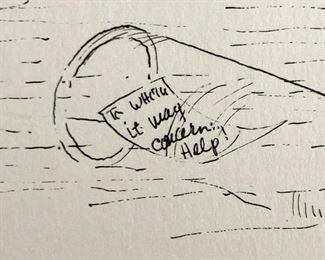 To whom
it may
concern:
Help!